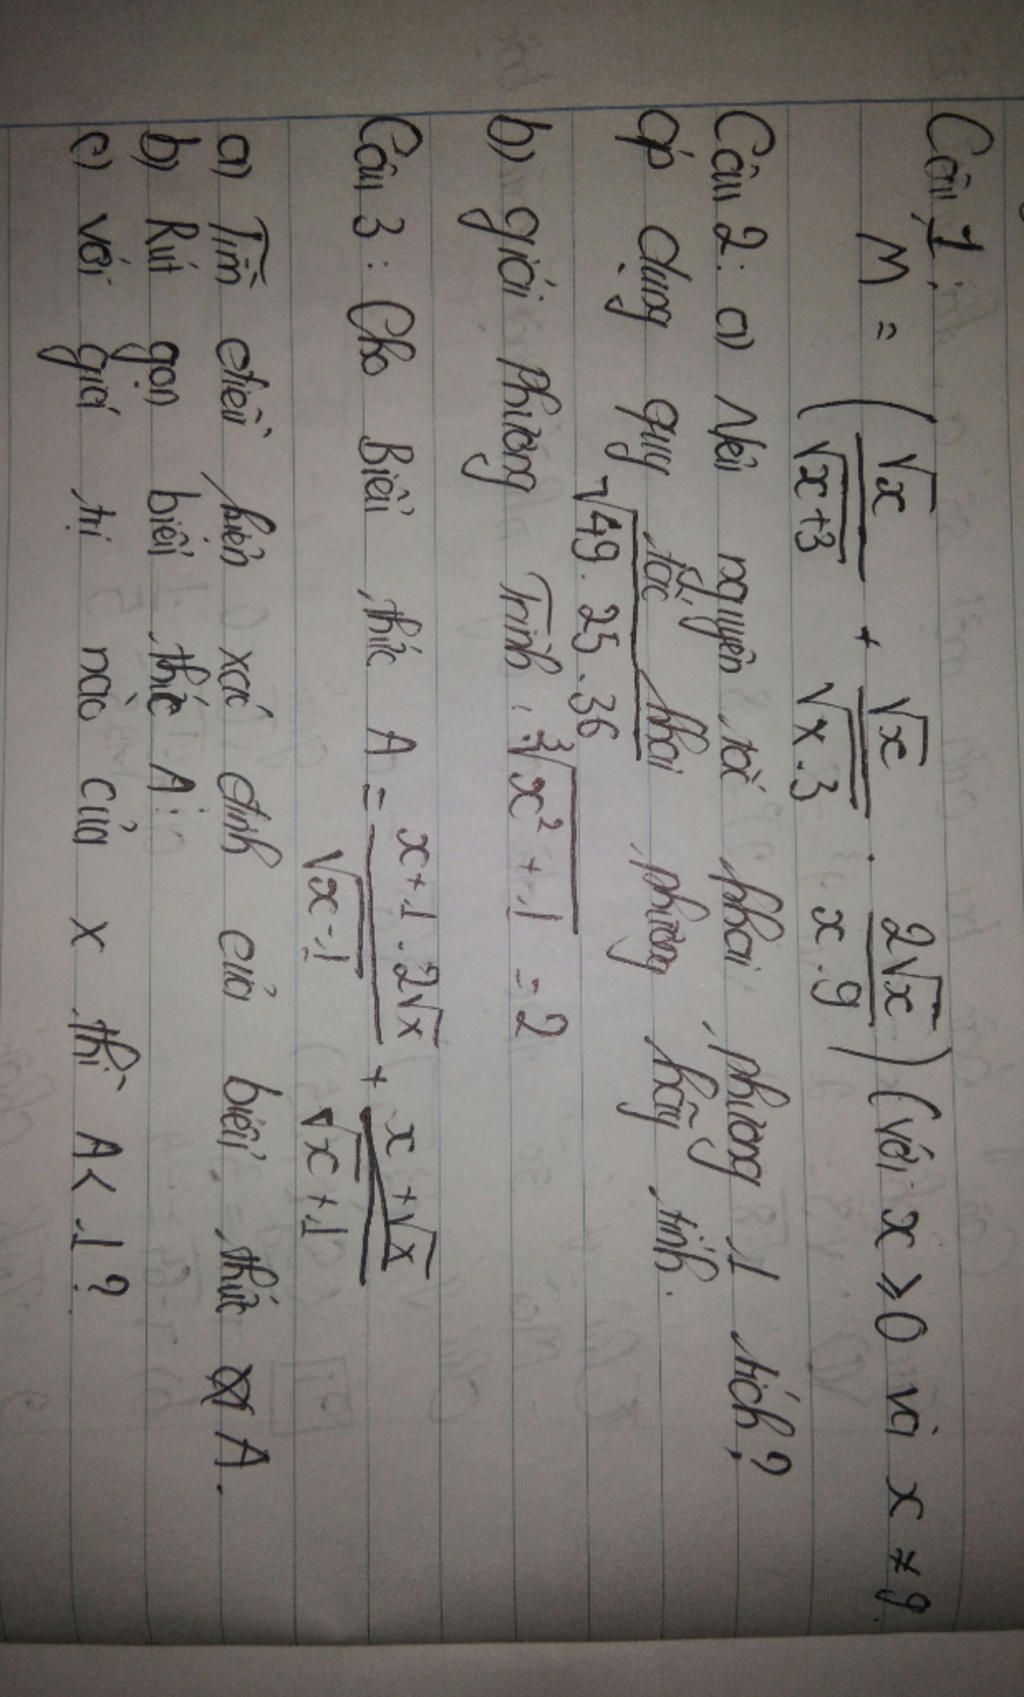 Câu 1:
M = ( √x / √x+3 + √x / √x.3 . 2√x / x.9 ) (với x ≥ 0 và x ≠ 9
Câu 2: a) Nêu nguyên tắc khai phương 1 tích?
áp dụng quy tắc khai phương hãy tính.
√49.25.36
b) giải Phương Trình: ∛x² + 1 = 2
Câu 3: Cho Biểu thức A = x+1.2√x / √x-1 + x+√x / √x+1
a) Tìm điều kiện xác định của biểu thức A.
b) Rút gọn biểu thức A:
c) với giá trị nào của x thì A < 1?